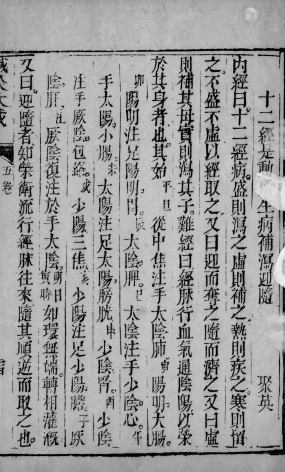 十二經是動 生病補瀉迎隨 聚英
內經曰。十二經病。盛則瀉之。虛則補之。熱則疾之。寒則留
之。不盛不虛。以經取之。又曰迎而奪之。隨而濟之。又曰虛
則補其母。實則瀉其子。難經曰經脈行血氣。通陰陽。以榮
於其身者也。其始平旦從中焦注手太陰肺。寅陽明大腸。
卯陽明注足陽明胃。辰太陰脾。巳太陰注手少陰心。午
手太陽小腸。未太陽注足太陽膀胱。申少陰腎。酉少陰
注手厥陰包絡。戌少陽三焦。亥少陽注足少陽膽。子厥
陰肝。丑厥陰復注於手太陰。明日寅時如環無端。轉相灌溉
又曰迎隨者。知榮衛流行。經脈往來。隨其順逆而取之也。
大成
五卷